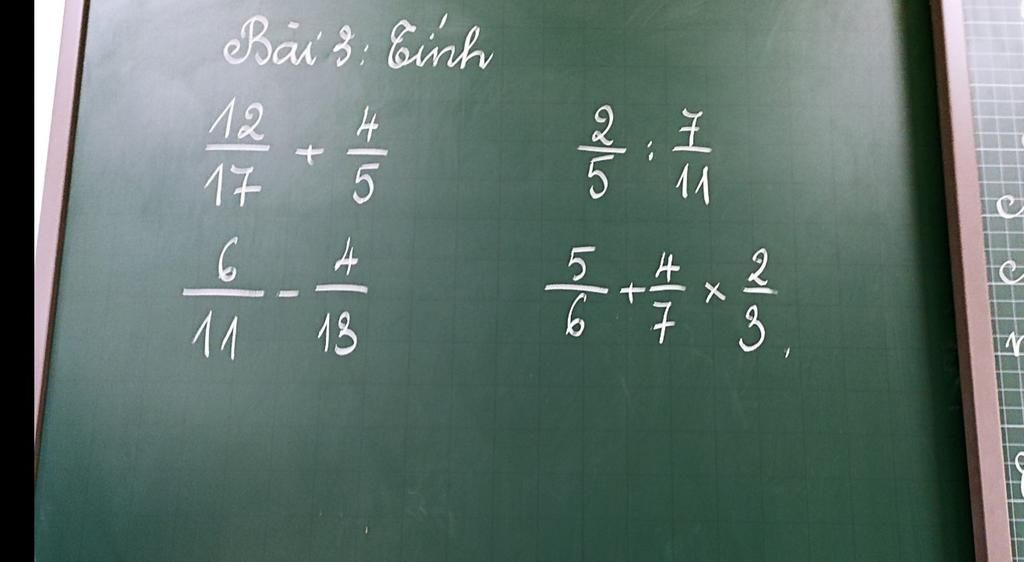 Bài 3: Tính
12/17 + 4/5
2/5 : 7/11
6/11 - 4/13
5/6 + 4/7 × 2/3.